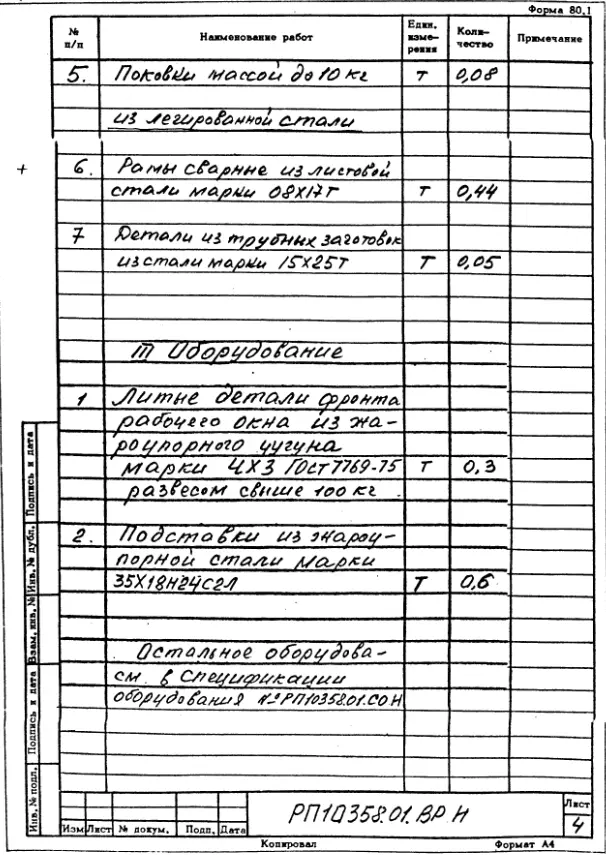 Форма 80.1
№ п/п Наименование работ Един. измерения Количество Примечание
5. Поковки массой до 10 кг т 0,08
из легированной стали
+ 6. Рамы сварные из листовой
стали марки 08Х17Т т 0,44
7 Детали из трубных заготовок
из стали марки 15Х25Т т 0,05
III Оборудование
1 Литые детали фронта
рабочего окна из жа-
роупорного чугуна
марки ЧХ3 ГОСТ 7769-75 т 0,3
развесом свыше 100 кг.
2. Подставки из жароу-
порной стали марки
35Х18Н24С2Л т 0,6
Остальное оборудова-
см. в Спецификации
оборудования № РП10358.01.СО Н
Инв. № подл. Подпись и дата Взам. инв. № Инв. № дубл. Подпись и дата
РП10358.01.ВР Н
Лист
4
Изм Лист № докум. Подп. Дата
Копировал Формат А4